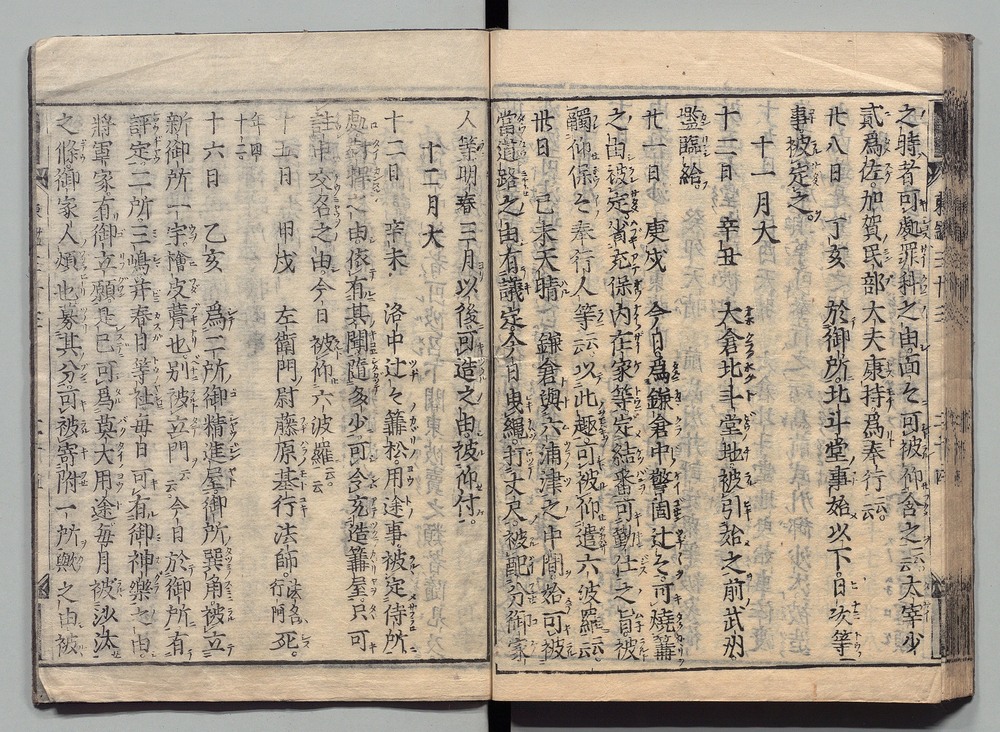 之時者可處罪科之由面々可被仰含之云云太宰少
貳爲佐加賀民部大夫康持爲奉行云云
廿八日　丁亥　於御所北斗堂事始以下日次等
事被定之
十一月大
十二日　辛丑　大倉北斗堂地被引始之前武州
監臨給
廿一日　庚戌　今日爲鎌倉中警固辻々可燒篝
之由被定省充保内在家等定結番可勤仕之旨被
觸仰保々奉行人等云云以此趣可被仰遣六波羅云云
卅日　己未天晴　鎌倉與六浦津之中間始可被
當道路之由有議定今日曳繩打丈尺被配分御家
人等明春三月以後可造之由被仰付
十二月大
十二日　辛未　洛中辻々篝松用途事被定侍所
之由依有其聞隨多少可令充造篝屋只可
註申交名之由今日被仰六波羅云云
十五日　甲戌　左衛門尉藤原基行法師法名行阿死
年四十二
十六日　乙亥　爲二所御精進屋御所巽角被立
新御所一宇檜皮葺也別被立門云云今日於御所有
評定二所三嶋并春日等社毎日可有御神樂之由
將軍家有御立願是已可爲莫大用途毎月被沙汰
之條御家人煩也募其分可被寄附一所歟之由被
東鑑三十三